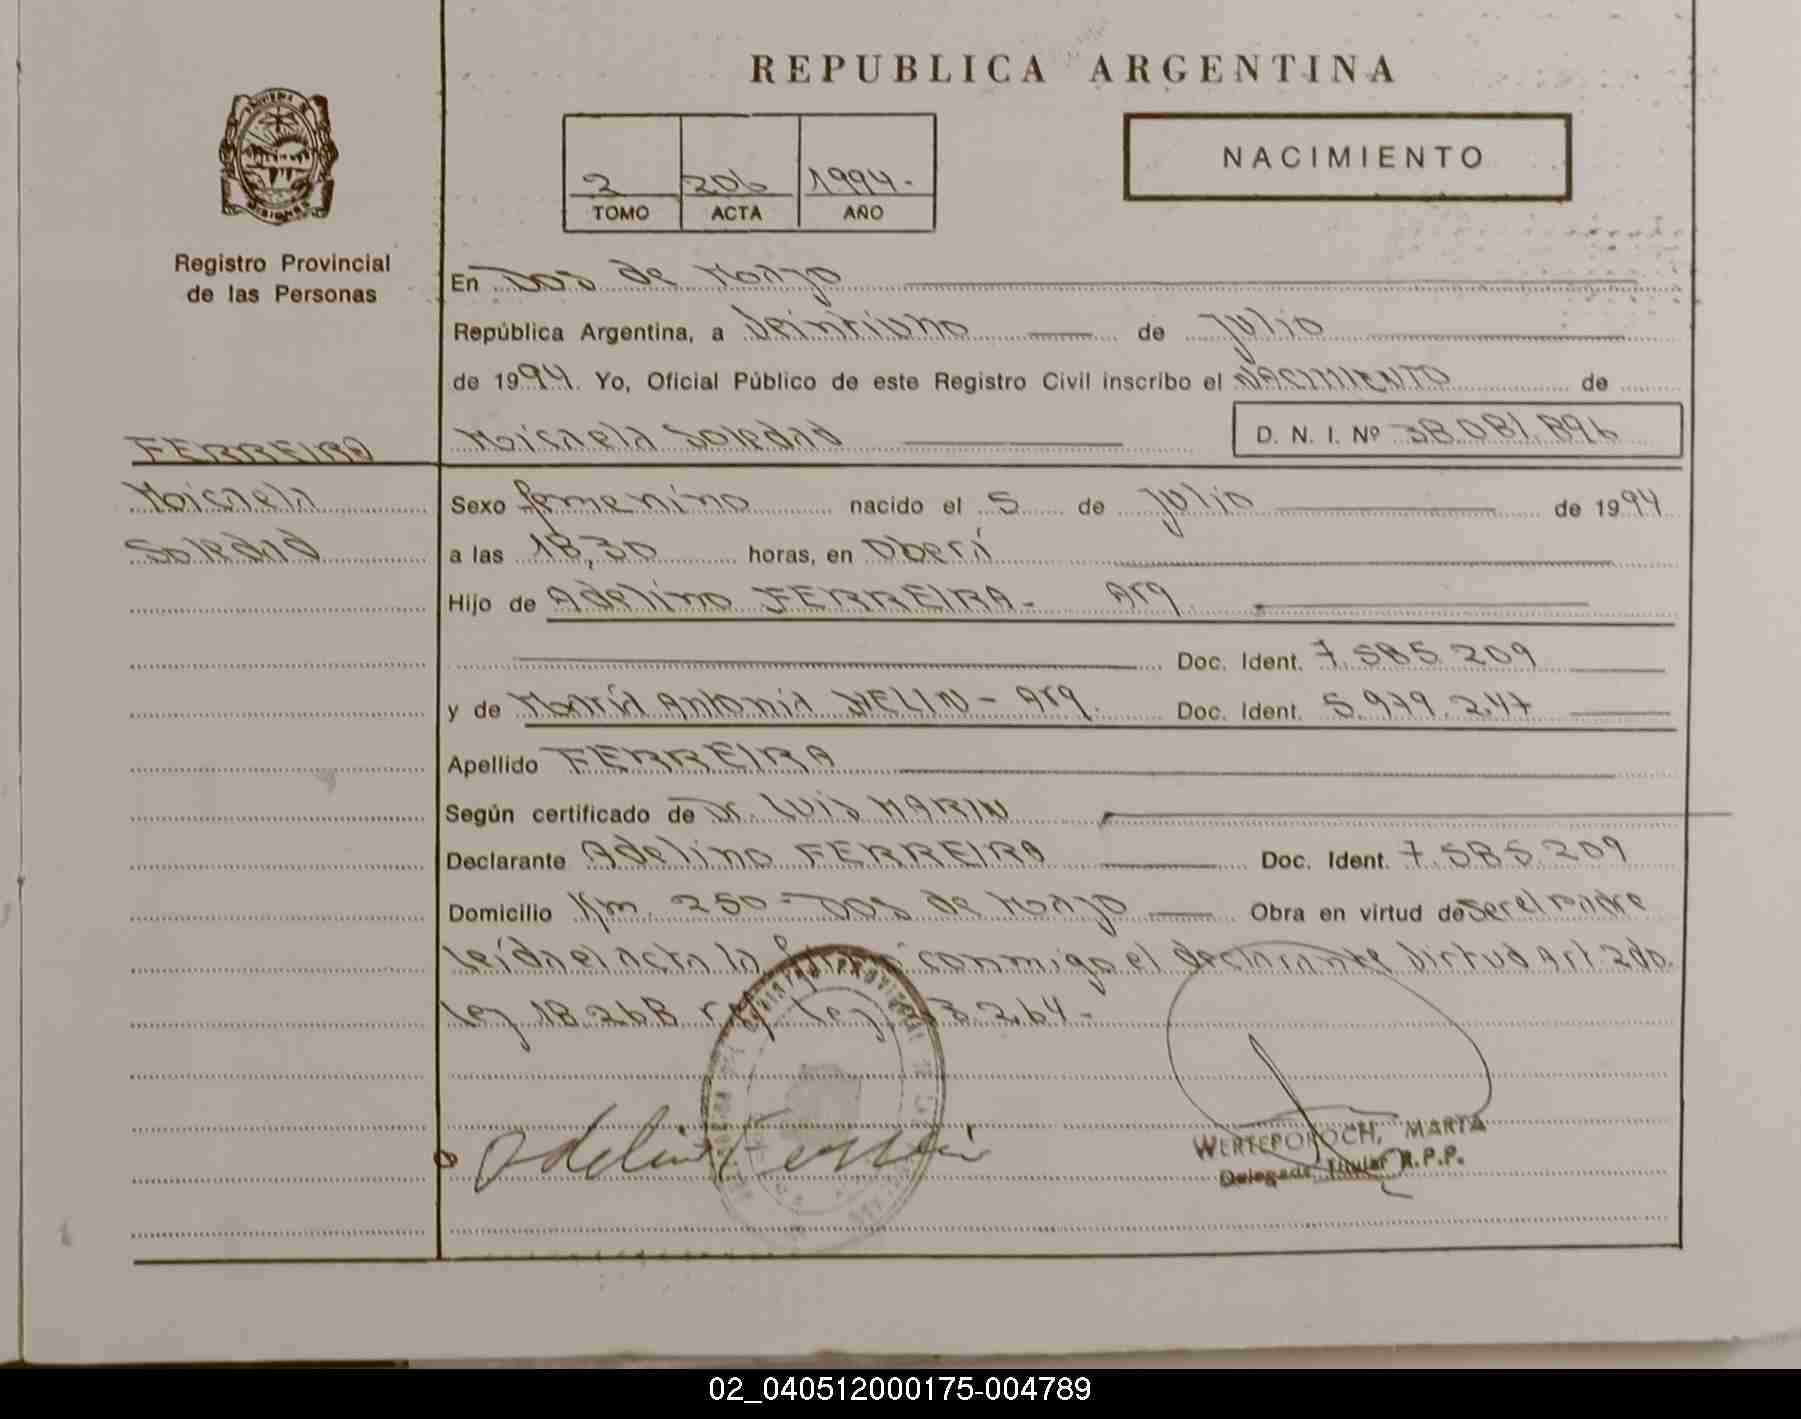 REPUBLICA ARGENTINA
NACIMIENTO
2 206 1994.-
TOMO ACTA AÑO
Registro Provincial
de las Personas
En Dos de Mayo
República Argentina, a Veintiuno de Julio
de 1994. Yo, Oficial Público de este Registro Civil inscribo el NACIMIENTO de
Moicaela Soledad D. N. I. Nº 38.081.896
FERREIRA
Moicaela
Soledad
Sexo femenino nacido el 5 de julio de 1994
a las 18,30 horas, en Oberá
Hijo de Adelino FERREIRA - Arg.
Doc. Ident. 7.585.209
y de María Antonia Arg. Doc. Ident. 5.979.247
Apellido FERREIRA
Según certificado de Dr. Luis MARIN
Declarante Adelino FERREIRA Doc. Ident. 7.585.209
Domicilio Km. 250 - Dos de Mayo Obra en virtud de ser el padre
leída el acta la conmigo el declarante virtud Art. 2do.
ley 18.268 ley 3.264.-
REGISTRO PROVINCIAL DE
Adelino Ferreira
WERTEPOROCH, MARTA
Delegada Titular R.P.P.
02_040512000175-004789